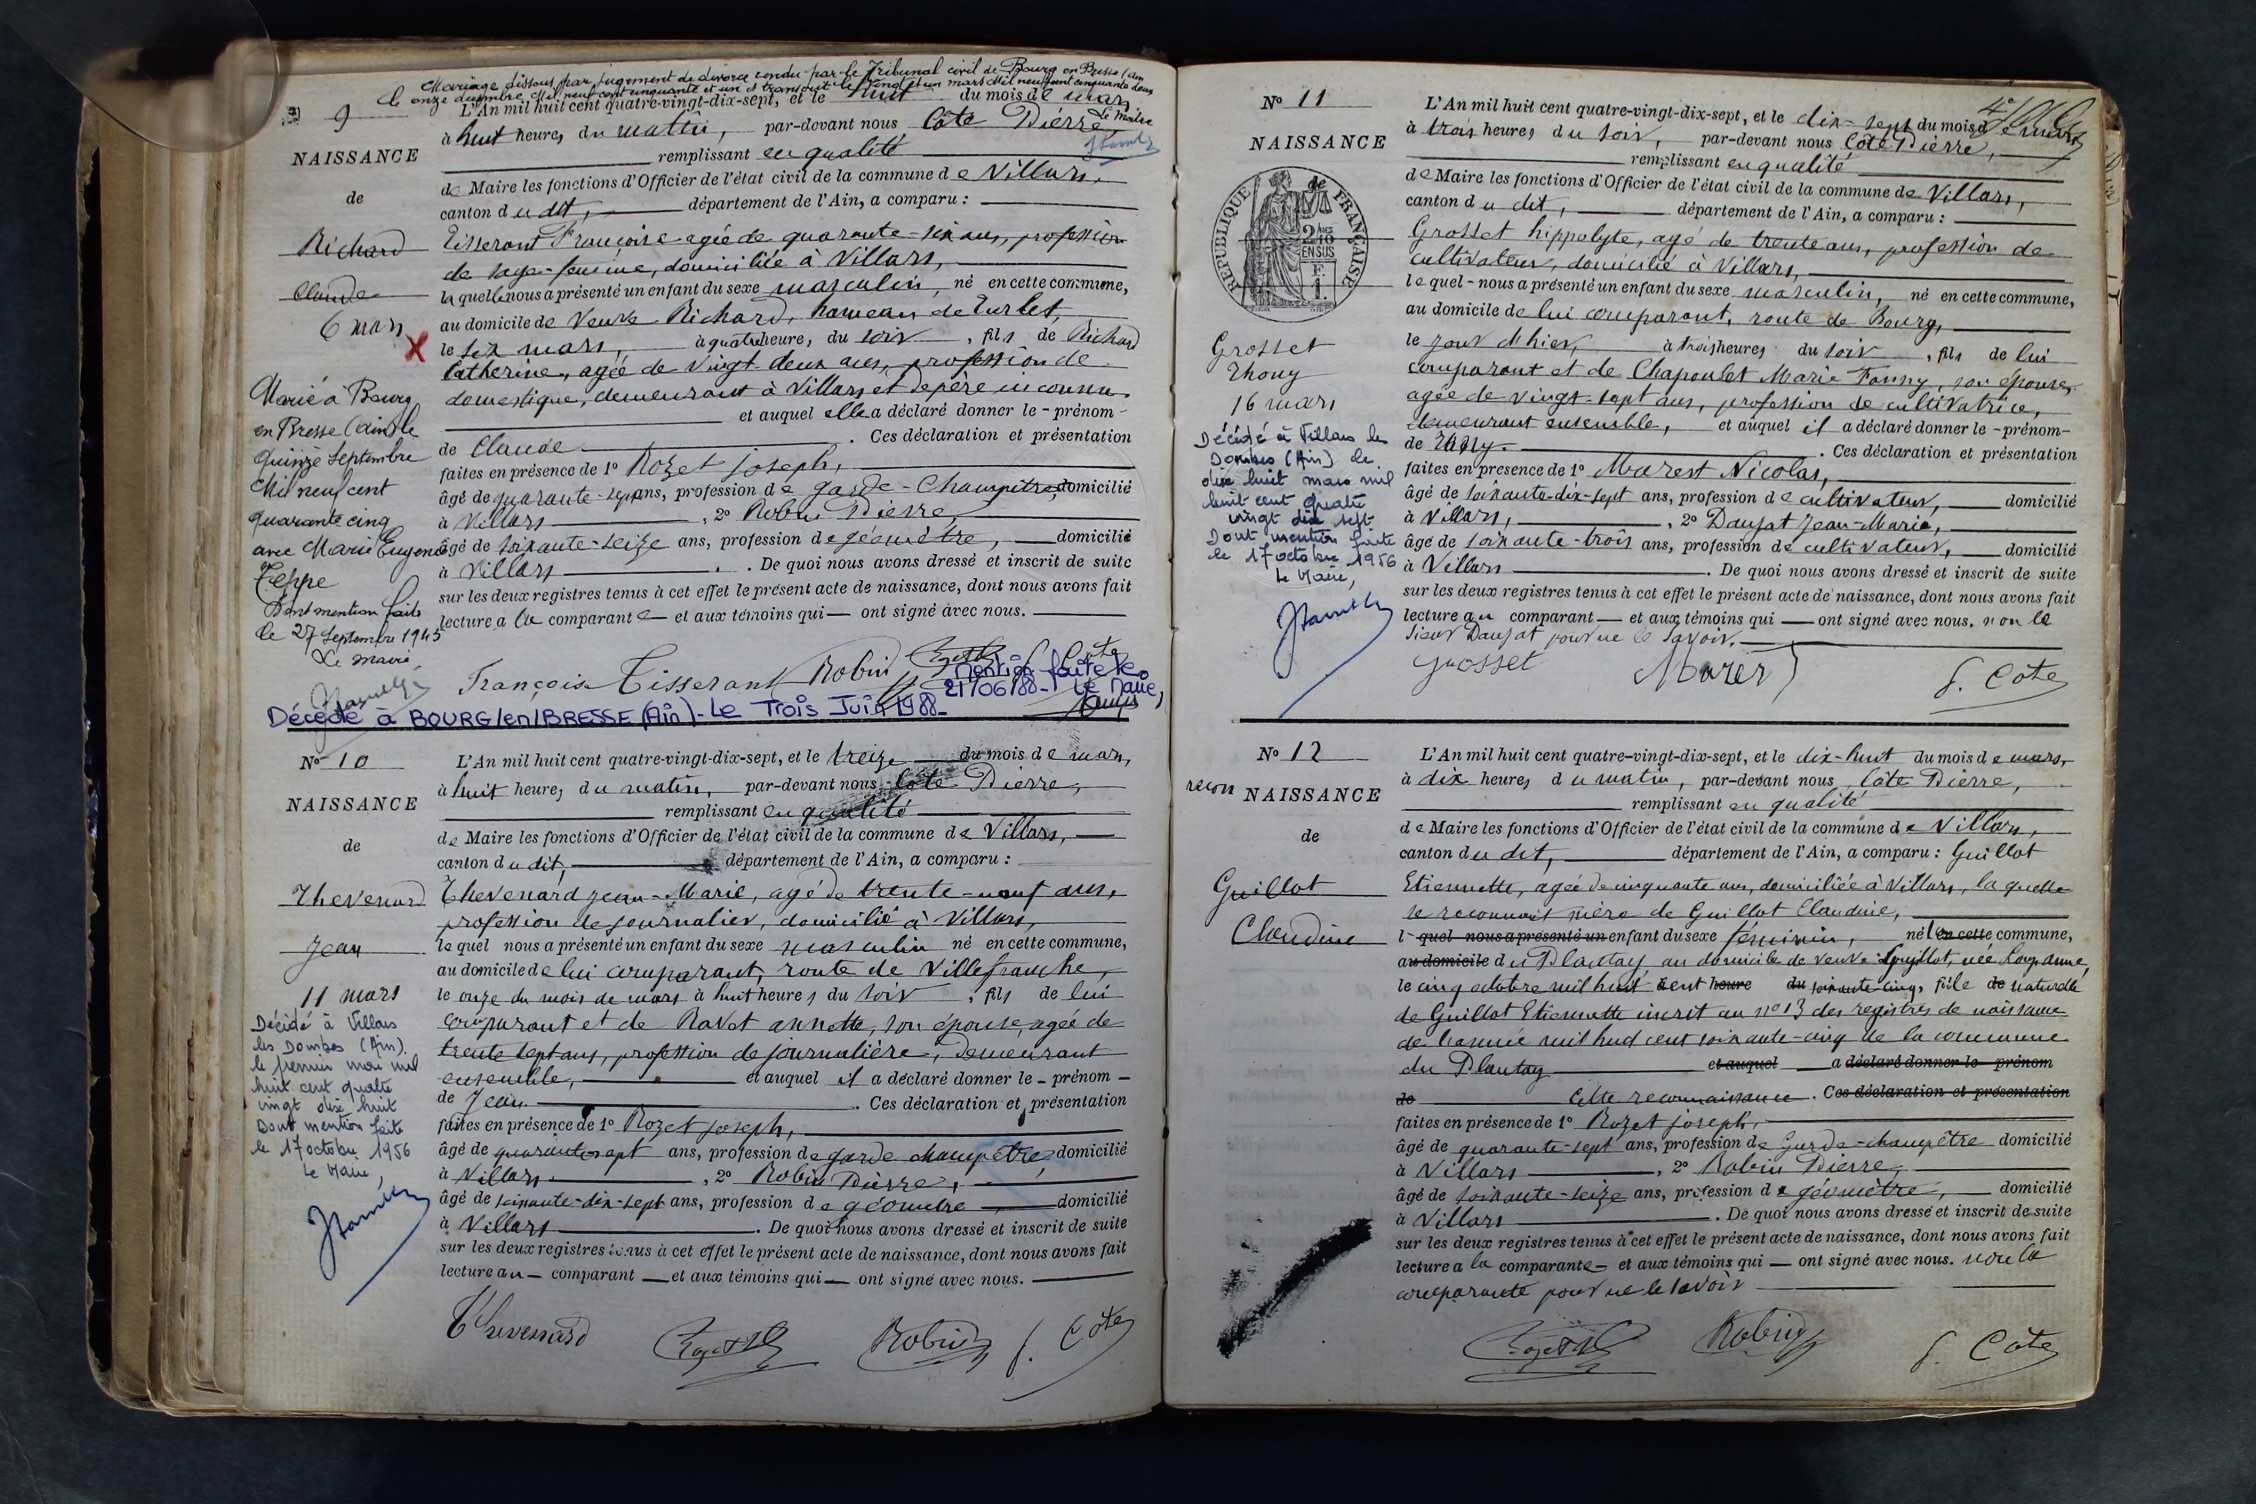 Mariage dissous par jugement de divorce rendu par le Tribunal civil de Bourg en Bresse (Ain
le onze décembre Mil neuf cent cinquante et un et transcrit le vingt et un mars Mil neuf cent cinquante deux
Le Maire
9
NAISSANCE
de
Richard
Claude
6 mars
X
L'An mil huit cent quatre-vingt-dix-sept, et le huit du mois de mars
à huit heures du matin, par-devant nous Côte Pierre,
remplissant en qualité
de Maire les fonctions d'Officier de l'état civil de la commune de Villars,
canton du dit, département de l'Ain, a comparu :
Tisserant Françoise agée de quarante-six ans, profession
de sage-femme, domiciliée à Villars,
laquelle nous a présenté un enfant du sexe masculin, né en cette commune,
au domicile de Veuve Richard, hameau de Turlet,
le six mars, à quatre heure, du soir, fils de Richard
Catherine, agée de vingt-deux ans, profession de
domestique, demeurant à Villars et de père inconnu
et auquel elle a déclaré donner le - prénom -
de Claude . Ces déclaration et présentation
faites en présence de 1° Rozet joseph,
âgé de quarante-sept ans, profession de garde-Champêtre, domicilié
à Villars , 2° Robin Pierre
âgé de soixante-seize ans, profession de géomètre, domicilié
à Villars . De quoi nous avons dressé et inscrit de suite
sur les deux registres tenus à cet effet le présent acte de naissance, dont nous avons fait
lecture a la comparante et aux témoins qui ont signé avec nous.
Marié à Bourg
en Bresse (Ain) le
quinze septembre
Mil neuf cent
quarante cinq
avec Marie Eugénie
Teppe
Dont mention faite
le 27 septembre 1945
Le maire,
Françoise Tisserant Robin Rozet P. Côte
Mention faite le
21/06/88 - Le Maire,
Décédé à BOURG/en/BRESSE (Ain) - Le Trois Juin 1988 -
N° 10
NAISSANCE
de
Thevenard
Jean
11 mars
L'An mil huit cent quatre-vingt-dix-sept, et le treize du mois de mars,
à huit heures du matin, par-devant nous Côte Pierre,
remplissant en qualité
de Maire les fonctions d'Officier de l'état civil de la commune de Villars,
canton du dit, département de l'Ain, a comparu :
Thevenard Jean-Marie, agé de trente-neuf ans,
profession de journalier, domicilié à Villars,
lequel nous a présenté un enfant du sexe masculin né en cette commune,
au domicile de lui comparant, route de Villefranche,
le onze du mois de mars à huit heures du soir, fils de lui
comparant et de Ravet annette, son épouse, agée de
trente sept ans, profession de journalière, demeurant
ensemble, et auquel il a déclaré donner le - prénom -
de Jean . Ces déclaration et présentation
faites en présence de 1° Rozet joseph,
âgé de quarante-sept ans, profession de garde champêtre, domicilié
à Villars , 2° Robin Pierre,
âgé de soixante-dix-sept ans, profession de géomètre domicilié
à Villars . De quoi nous avons dressé et inscrit de suite
sur les deux registres tenus à cet effet le présent acte de naissance, dont nous avons fait
lecture au comparant et aux témoins qui ont signé avec nous.
Décédé à Villars
les Dombes (Ain)
le premier mai mil
huit cent quatre
vingt dix huit
Dont mention faite
le 17 octobre 1956
Le Maire,
Thevenard Rozet Robin P. Côte
N° 11
NAISSANCE
de
RÉPUBLIQUE FRANÇAISE
2/10 EN SUS
Grosset
Thony
16 mars
L'An mil huit cent quatre-vingt-dix-sept, et le dix-sept du mois de mars
à trois heures du soir, par-devant nous Côte Pierre,
remplissant en qualité
de Maire les fonctions d'Officier de l'état civil de la commune de Villars,
canton du dit, département de l'Ain, a comparu :
Grosset hippolyte, agé de trente ans, profession de
cultivateur, domicilié à Villars,
lequel - nous a présenté un enfant du sexe masculin, né en cette commune,
au domicile de lui comparant, route de Bourg,
le jour d'hier, à trois heures du soir, fils de lui
comparant et de Chapoulet Marie Fanny, son épouse,
agée de vingt-sept ans, profession de cultivatrice,
demeurant ensemble, et auquel il a déclaré donner le - prénom -
de Thony . Ces déclaration et présentation
faites en présence de 1° Marest Nicolas,
âgé de soixante-dix-sept ans, profession de cultivateur, domicilié
à Villars, , 2° Dauzat Jean-Marie,
âgé de soixante-trois ans, profession de cultivateur, domicilié
à Villars . De quoi nous avons dressé et inscrit de suite
sur les deux registres tenus à cet effet le présent acte de naissance, dont nous avons fait
lecture au comparant et aux témoins qui ont signé avec nous. non le
sieur Dauzat pour ne le savoir.
Décédé à Villars les
Dombes (Ain) le
dix huit mars mil
huit cent quatre
vingt dix sept
Dont mention faite
le 17 octobre 1956
Le Maire,
Grosset Marest P. Côte
N° 12
recon
NAISSANCE
de
Guillot
Claudine
L'An mil huit cent quatre-vingt-dix-sept, et le dix-huit du mois de mars,
à dix heures du matin, par-devant nous Côte Pierre,
remplissant en qualité
de Maire les fonctions d'Officier de l'état civil de la commune de Villars,
canton du dit, département de l'Ain, a comparu : Guillot
Etiennette, agée de cinquante ans, domiciliée à Villars, laquelle
se reconnait mère de Guillot Claudine,
l quel nous a présenté un enfant du sexe féminin, né en cette commune,
au domicile du Plantay au domicile de veuve Guillot, née
le cinq octobre mil huit cent heure du soixante-cinq, fille de naturelle
de Guillot Etiennette inscrit au n° 13 des registres de naissance
de l'année mil huit cent soixante-cinq de la commune
du Plantay et auquel a déclaré donner le prénom
de Cette reconnaissance. Ces déclaration et présentation
faites en présence de 1° Rozet joseph,
âgé de quarante-sept ans, profession de Garde-champêtre domicilié
à Villars , 2° Robin Pierre,
âgé de soixante-seize ans, profession de géomètre, domicilié
à Villars . De quoi nous avons dressé et inscrit de suite
sur les deux registres tenus à cet effet le présent acte de naissance, dont nous avons fait
lecture a la comparante - et aux témoins qui ont signé avec nous. non la
comparante pour ne le savoir
Rozet Robin P. Côte